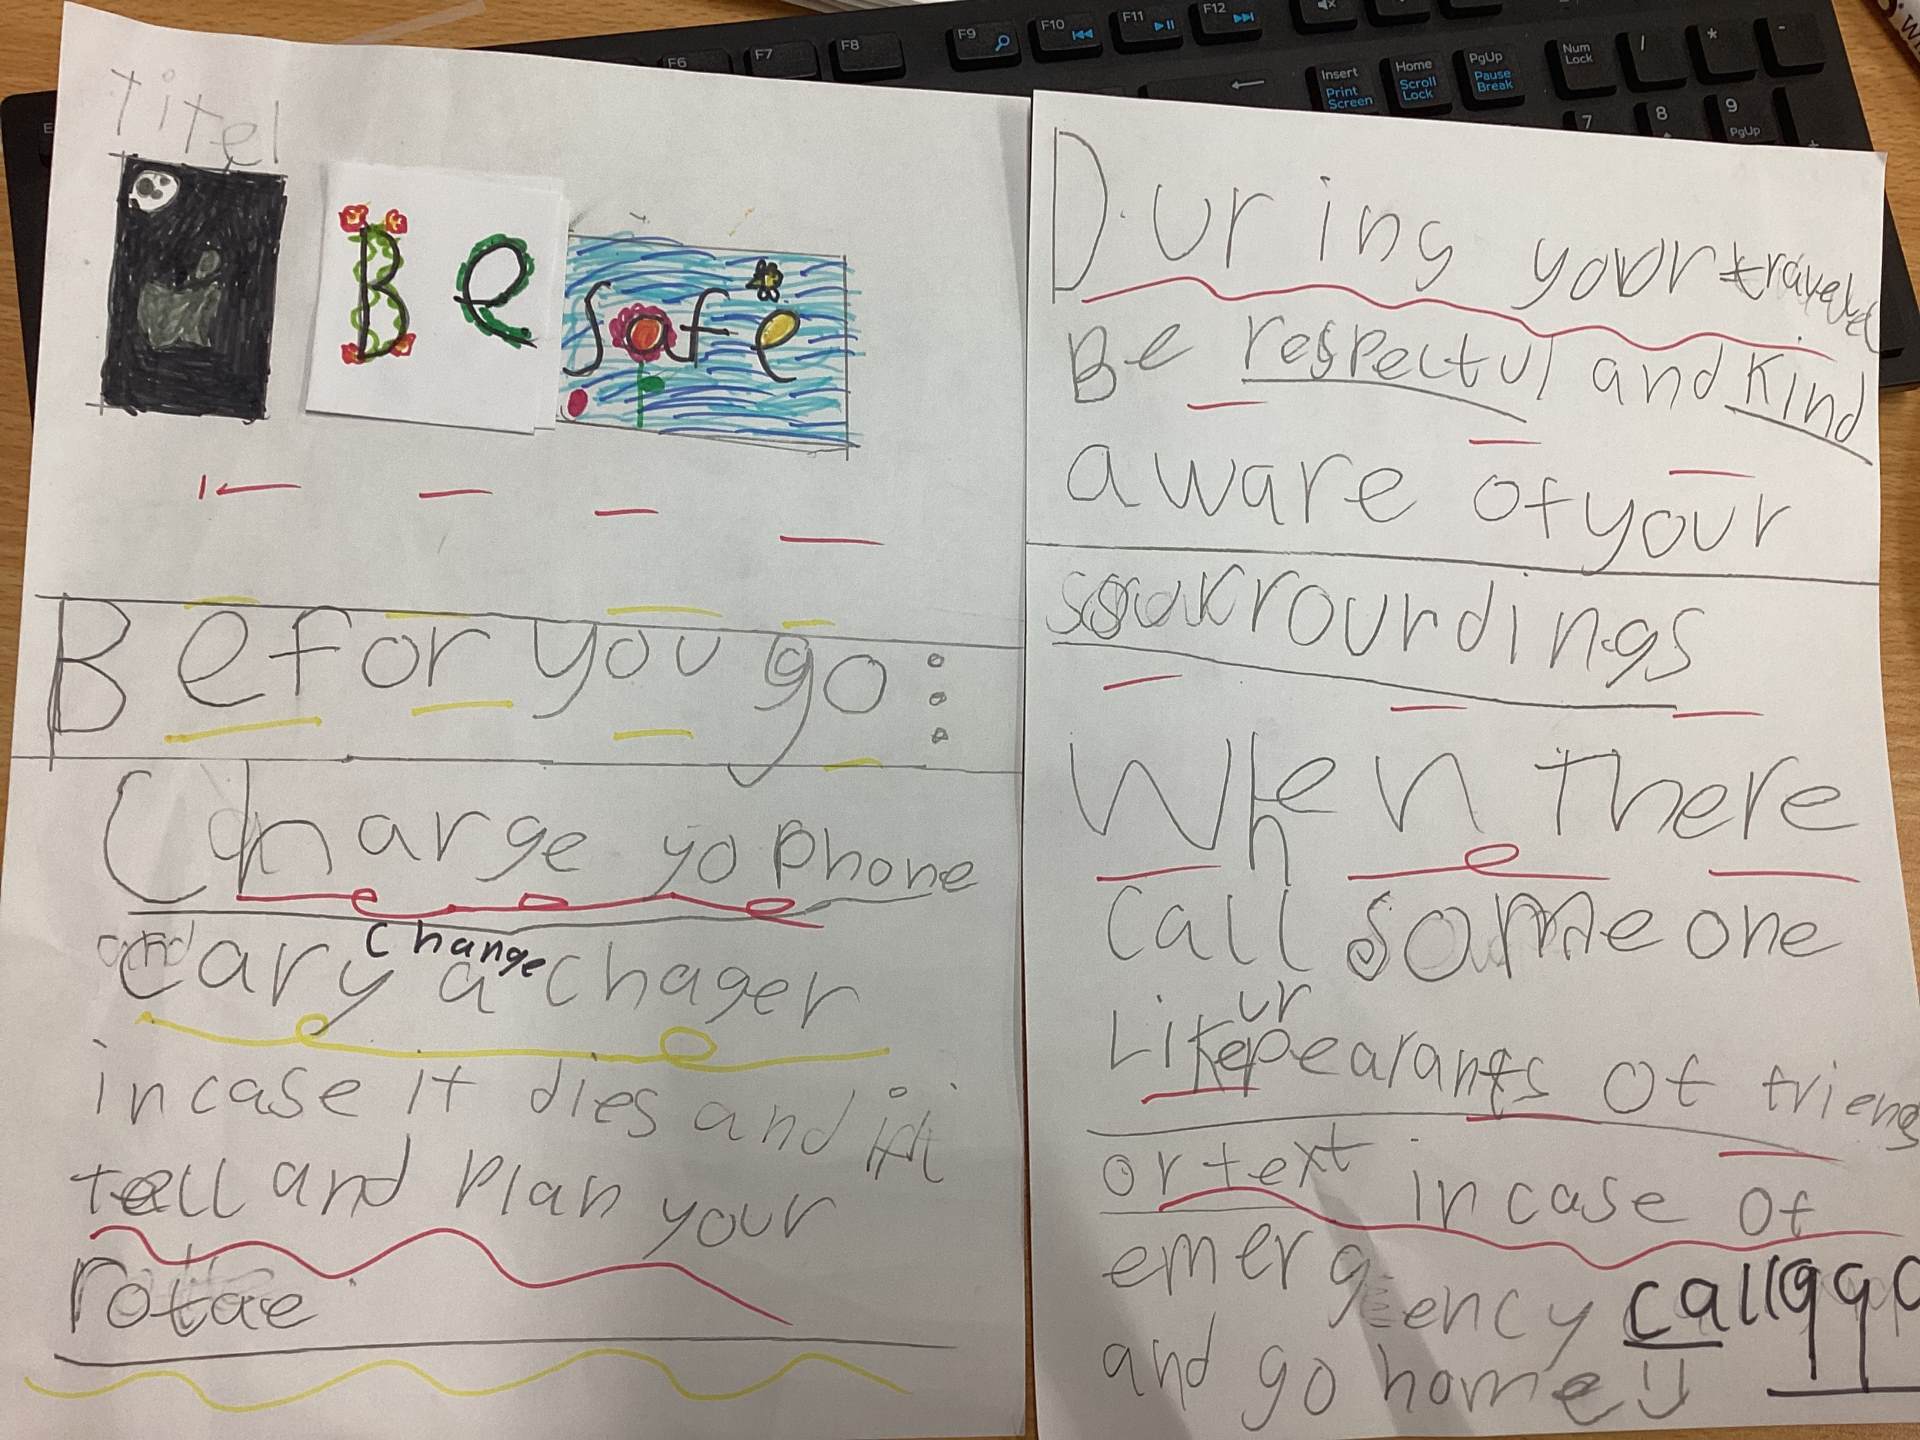 F6 F7 F8 F9 F10 F11 F12
Insert Print Screen
Home Scroll Lock
PgUp Pause Break
Num Lock / * -
7 8 9 PgUp
Titel
Be safe
Befor you go:
Charge yo phone
and cary a chager
change
in case it dies and
tell and plan your
rotae
During your travel
Be respectul and kind
aware of your
surroundings
When There
call someone
Like ur pearants of friend
or text in case of
emergency call 999
and go home